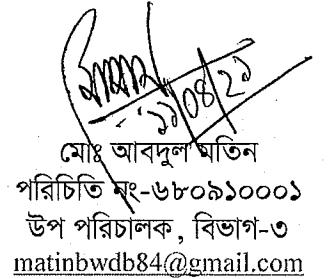 ১১/০৪/২১
মোঃ আবদুল মতিন
পরিচিতি নং-৬৮০৯১০০০১
উপ পরিচালক, বিভাগ-৩
matinbwdb84@gmail.com